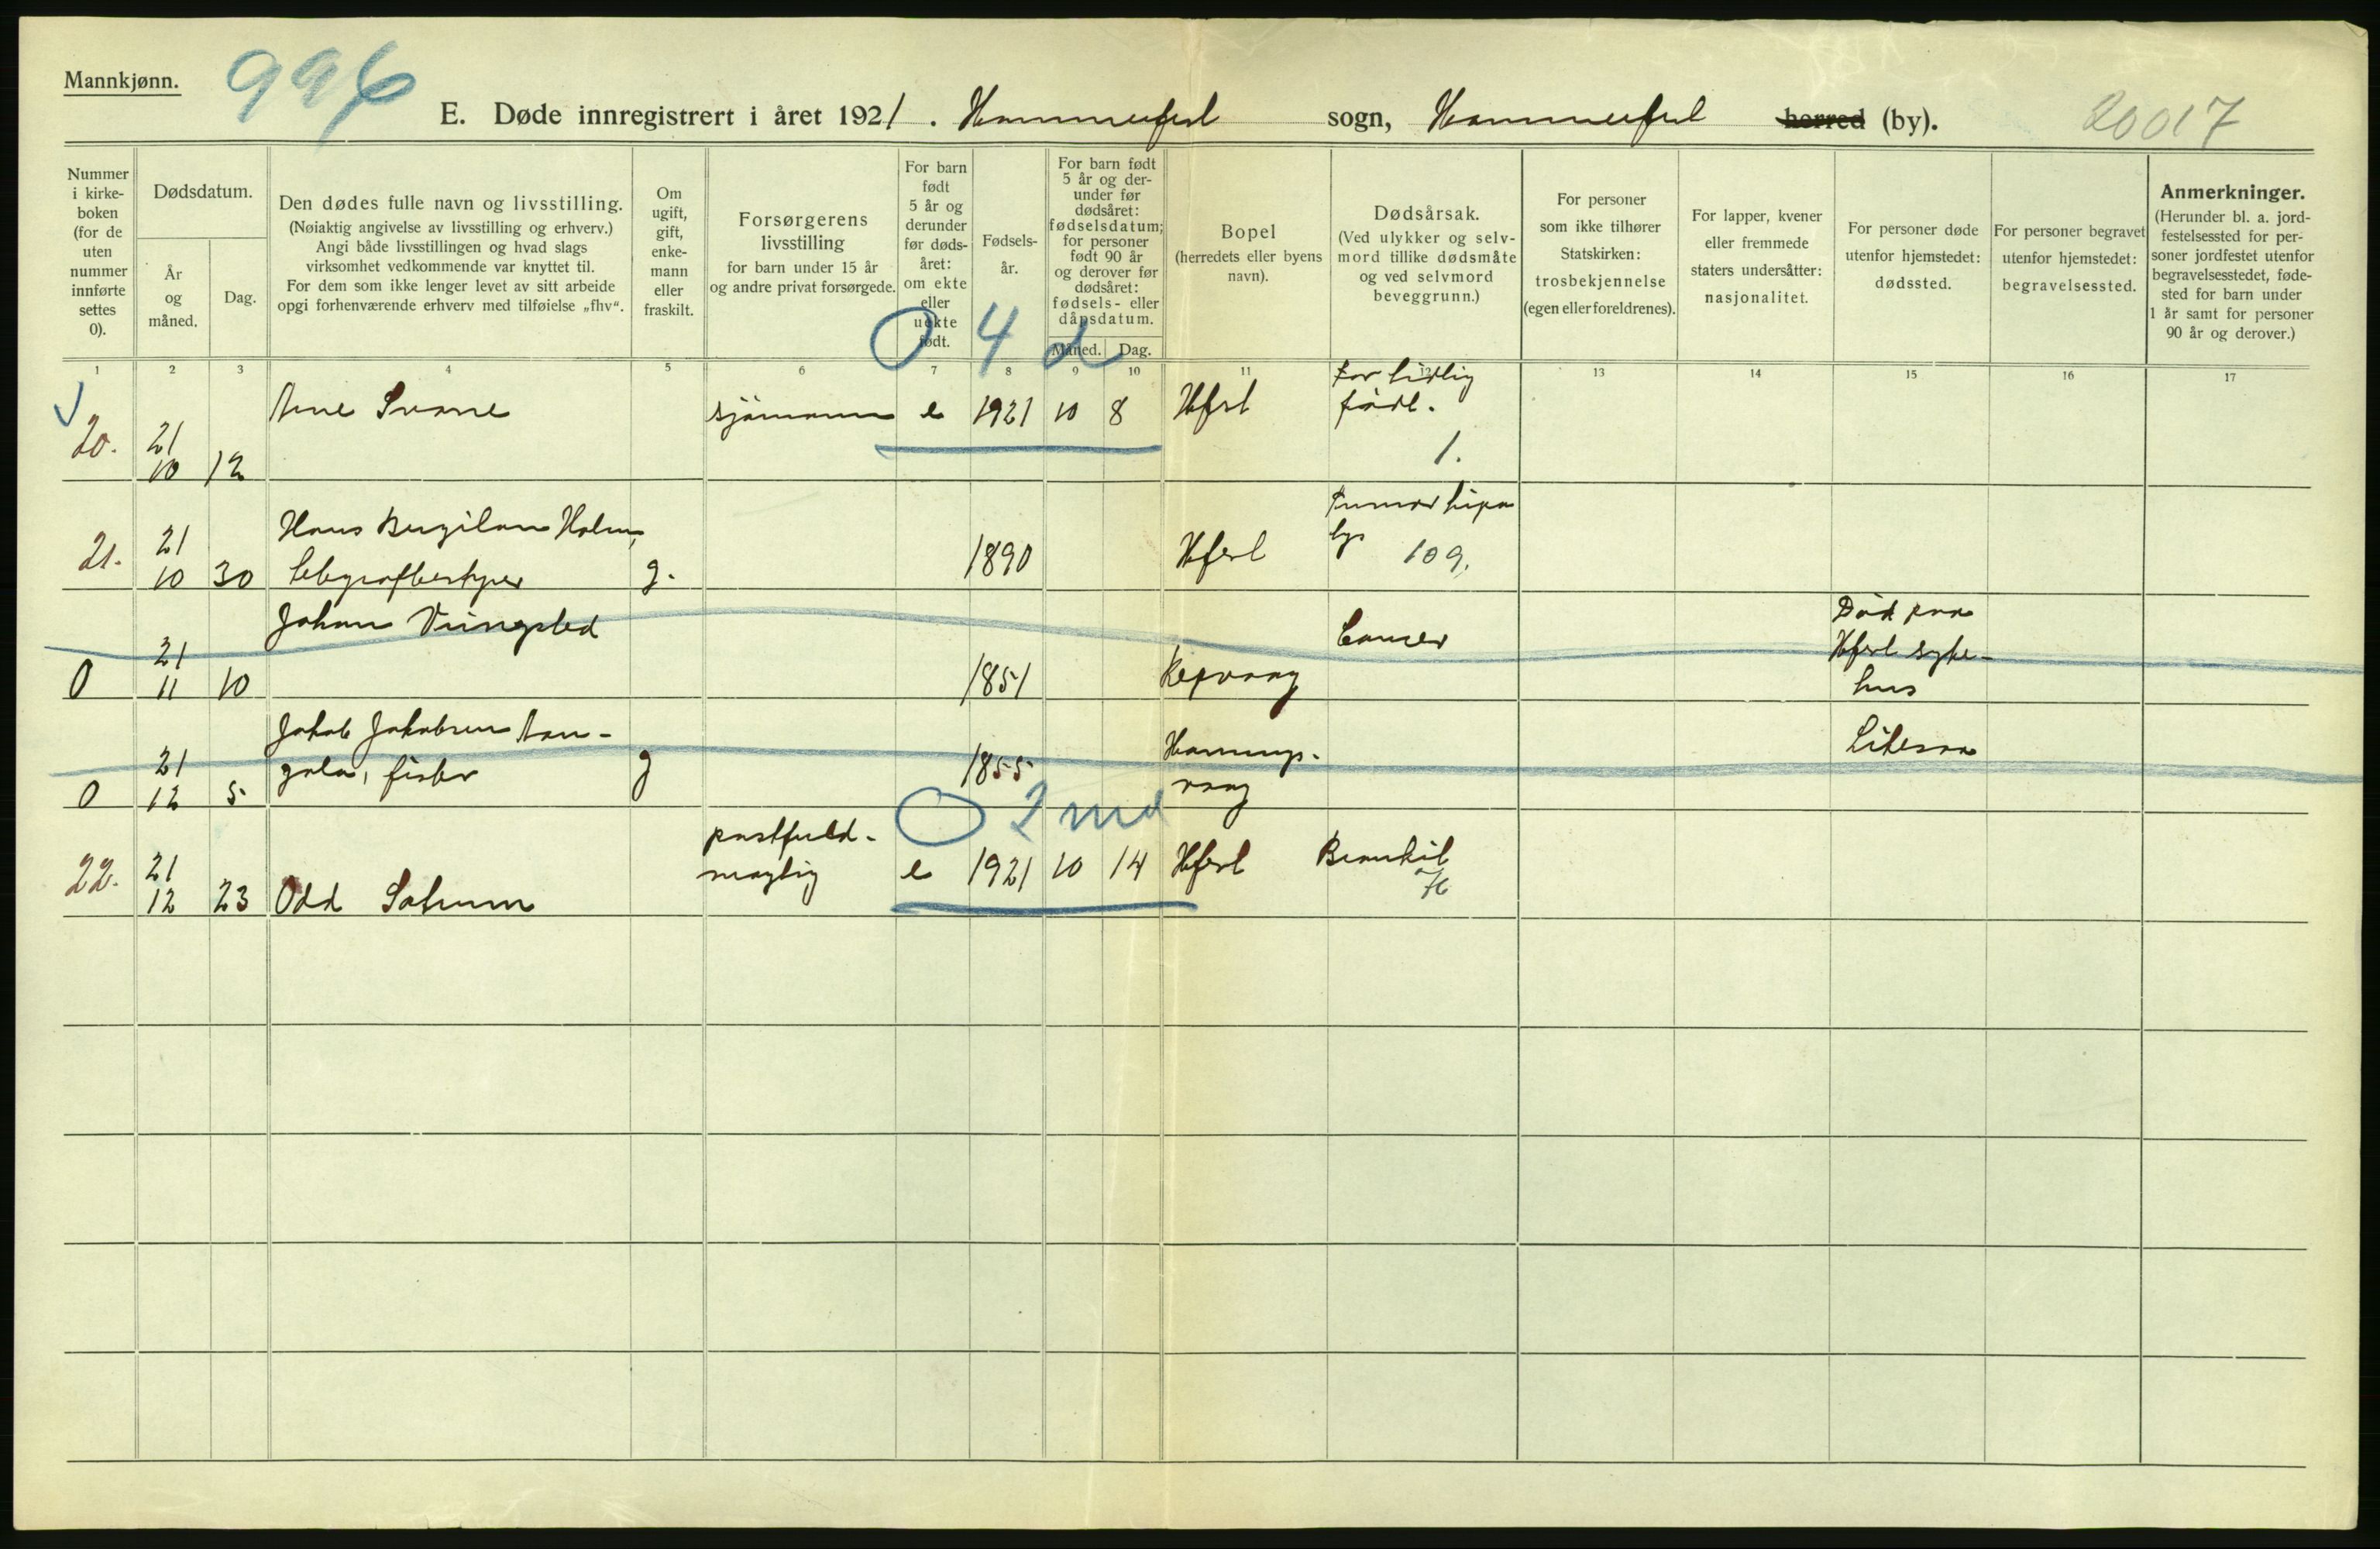 Mannkjønn.
996
E. Døde innregistrert i året 1921. Hammerfest sogn, Hammerfest herred (by).
20017
Nummer i kirkeboken (for de uten nummer innførte settes 0).
Dødsdatum.
År og måned.
Dag.
Den dødes fulle navn og livsstilling.
(Nøiaktig angivelse av livsstilling og erhverv.)
Angi både livsstillingen og hvad slags
virksomhet vedkommende var knyttet til.
For dem som ikke lenger levet av sitt arbeide
opgi forhenværende erhverv med tilføielse „fhv“.
Om ugift, gift, enkemann eller fraskilt.
Forsørgerens
livsstilling
for barn under 15 år
og andre privat forsørgede.
For barn født 5 år og derunder før dødsåret: om ekte eller uekte født.
Fødselsår.
For barn født 5 år og derunder før dødsåret: fødselsdatum; for personer født 90 år og derover før dødsåret: fødsels- eller dåpsdatum.
Måned. Dag.
Bopel
(herredets eller byens
navn).
Dødsårsak.
(Ved ulykker og selvmord tillike dødsmåte
og ved selvmord
beveggrunn.)
For personer
som ikke tilhører
Statskirken:
trosbekjennelse
(egen eller foreldrenes).
For lapper, kvener
eller fremmede
staters undersåtter:
nasjonalitet.
For personer døde
utenfor hjemstedet:
dødssted.
For personer begravet
utenfor hjemstedet:
begravelsessted.
Anmerkninger.
(Herunder bl. a. jordfestelsessted for personer jordfestet utenfor
begravelsesstedet, fødested for barn under
1 år samt for personer
90 år og derover.)
1 2 3 4 5 6 7 8 9 10 11 12 13 14 15 16 17
0 4 d
20. 21 10 12 Arne Svane sjömann e 1921 10 8 Hfest For tidlig födt. 1.
21. 21 10 30 Hans Holm, telegrafbestyrer g. 1890 Hfest 109.
0 21 11 10 Johan 1851 Repvaag Cancer Död paa Hfest sykehus
0 21 12 5 Jakob Jakobsen fisker g 1855 Honningsvaag Likesaa
0 2 md
22. 21 12 23 Odd Satrum postfuldmægtig e 1921 10 14 Hfest Bronkit 76